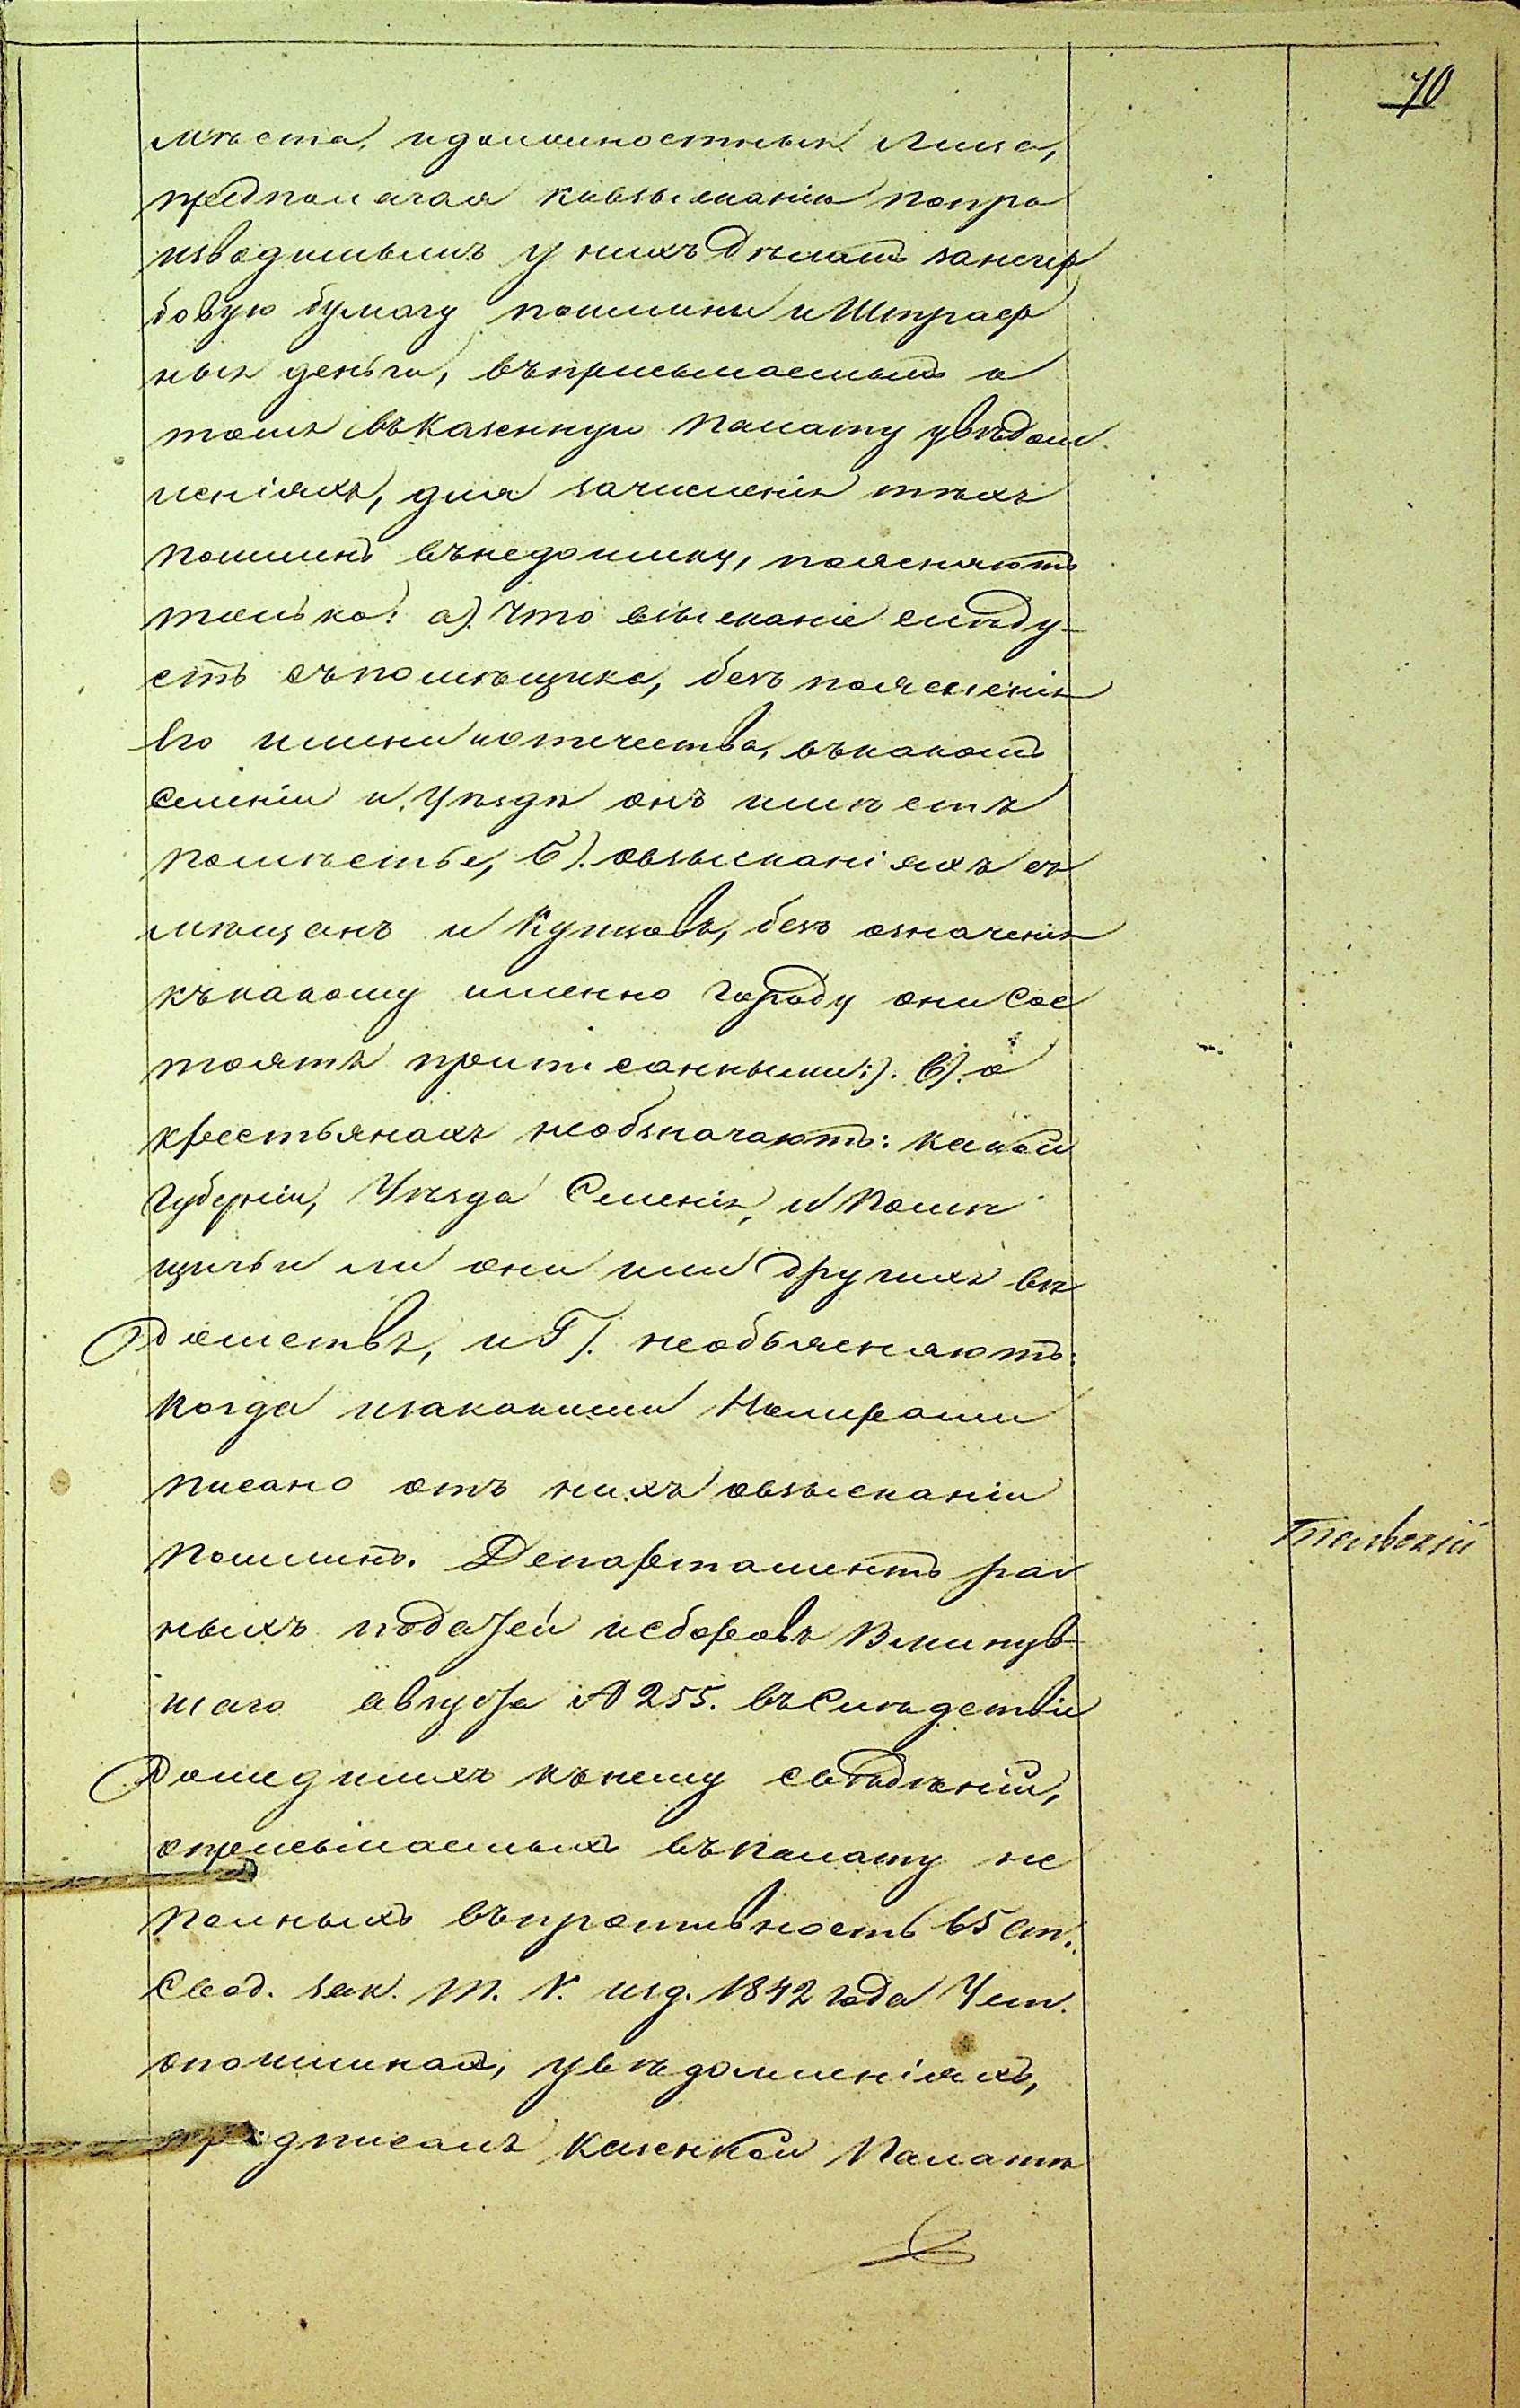 70
мѣста, и должностныя лица,
предполагая ко взысканію по про
изводимымъ у нихъ дѣламъ за гер
бовую бумагу пошлины и Штраф
ныя деньги, въ присылаемыхъ о
томъ въ Казенную Палату увѣдом
леніяхъ, для зачисленія тѣхъ
пошлинъ въ недоимку, поясняютъ
только: а). Что взысканіе слѣду-
етъ съ помѣщика, безъ поясненія
его имени и отчества, въ какомъ
Селеніи и Уѣздѣ онъ имѣетъ
помѣстье, б). о взысканіяхъ съ
мѣщанъ и Купцовъ, безъ означенія
къ какому именно городу они Сос
тоятъ приписанными:). в). о
крестьянахъ необзначаютъ: какой
Губерніи, Уѣзда Селенія, и Помѣ
щичьи ли они или другихъ вѣ
домствъ, и Г). необъясняютъ:
когда и за какими Номерами
писано отъ нихъ о взысканіи
пошлинъ. Департаментъ раз
ныхъ податей и сборовъ В минув-
шаго августа № 255. въ Слѣдствіи
Дошедшихъ къ нему свѣдѣній,
о присылаемыхъ въ палату не
полныхъ въ противность 65 ст.
Свод. зак. Т. V. изд. 1842 года Уст.
о пошлинахъ, увѣдомленіяхъ,
предписалъ Казенной Палатѣ